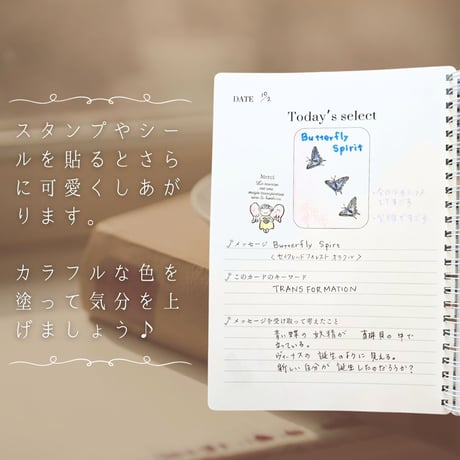 スタンプやシー
ルを貼るとさら
に可愛くしあが
ります。
カラフルな色を
塗って気分を上
げましょう♪
DATE 10/2
Today's select
Butterfly
Spirit
Merci
メッセージ Butterfly Spirit
このカードのキーワード
TRANSFORMATION
メッセージを受け取って考えたこと
青い蝶の妖精が 真珠貝の中で
立っている。
ヴィーナスの誕生のように見える。
新しい自分が誕生したのだろうか?